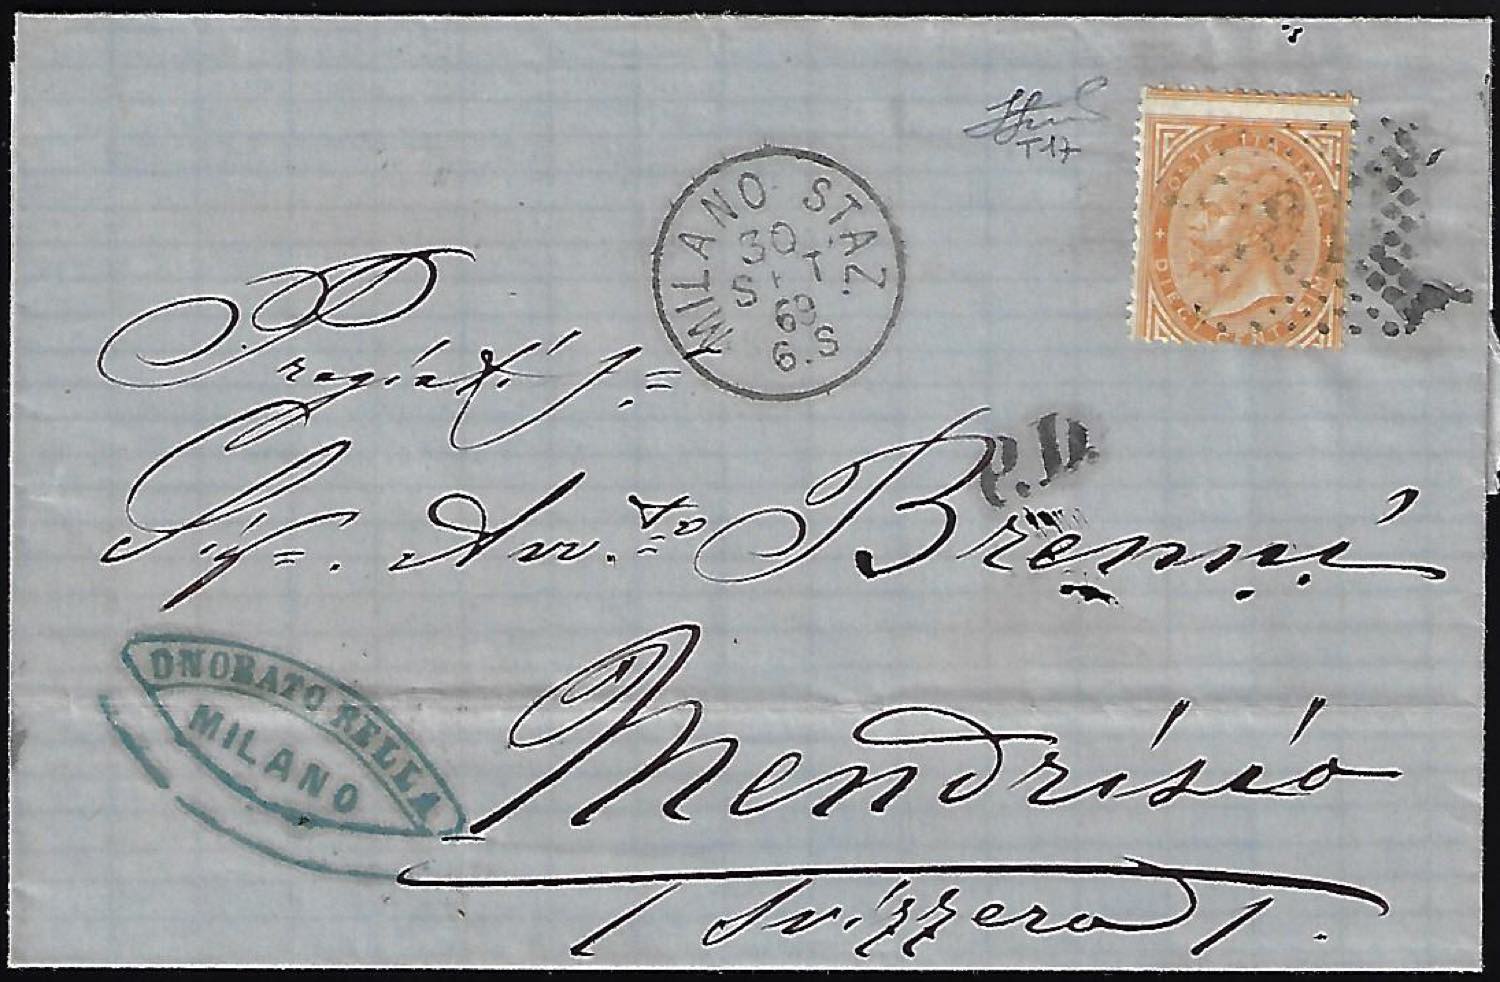 T17
POSTE ITALIANE
DIECI CENTESIMI
MILANO STAZ.
30
SET
69
6.S
P.D.
Pregiat.
Sig. Avv.to Brenni
Mendrisio
Svizzera
ONORATO RELLA
MILANO